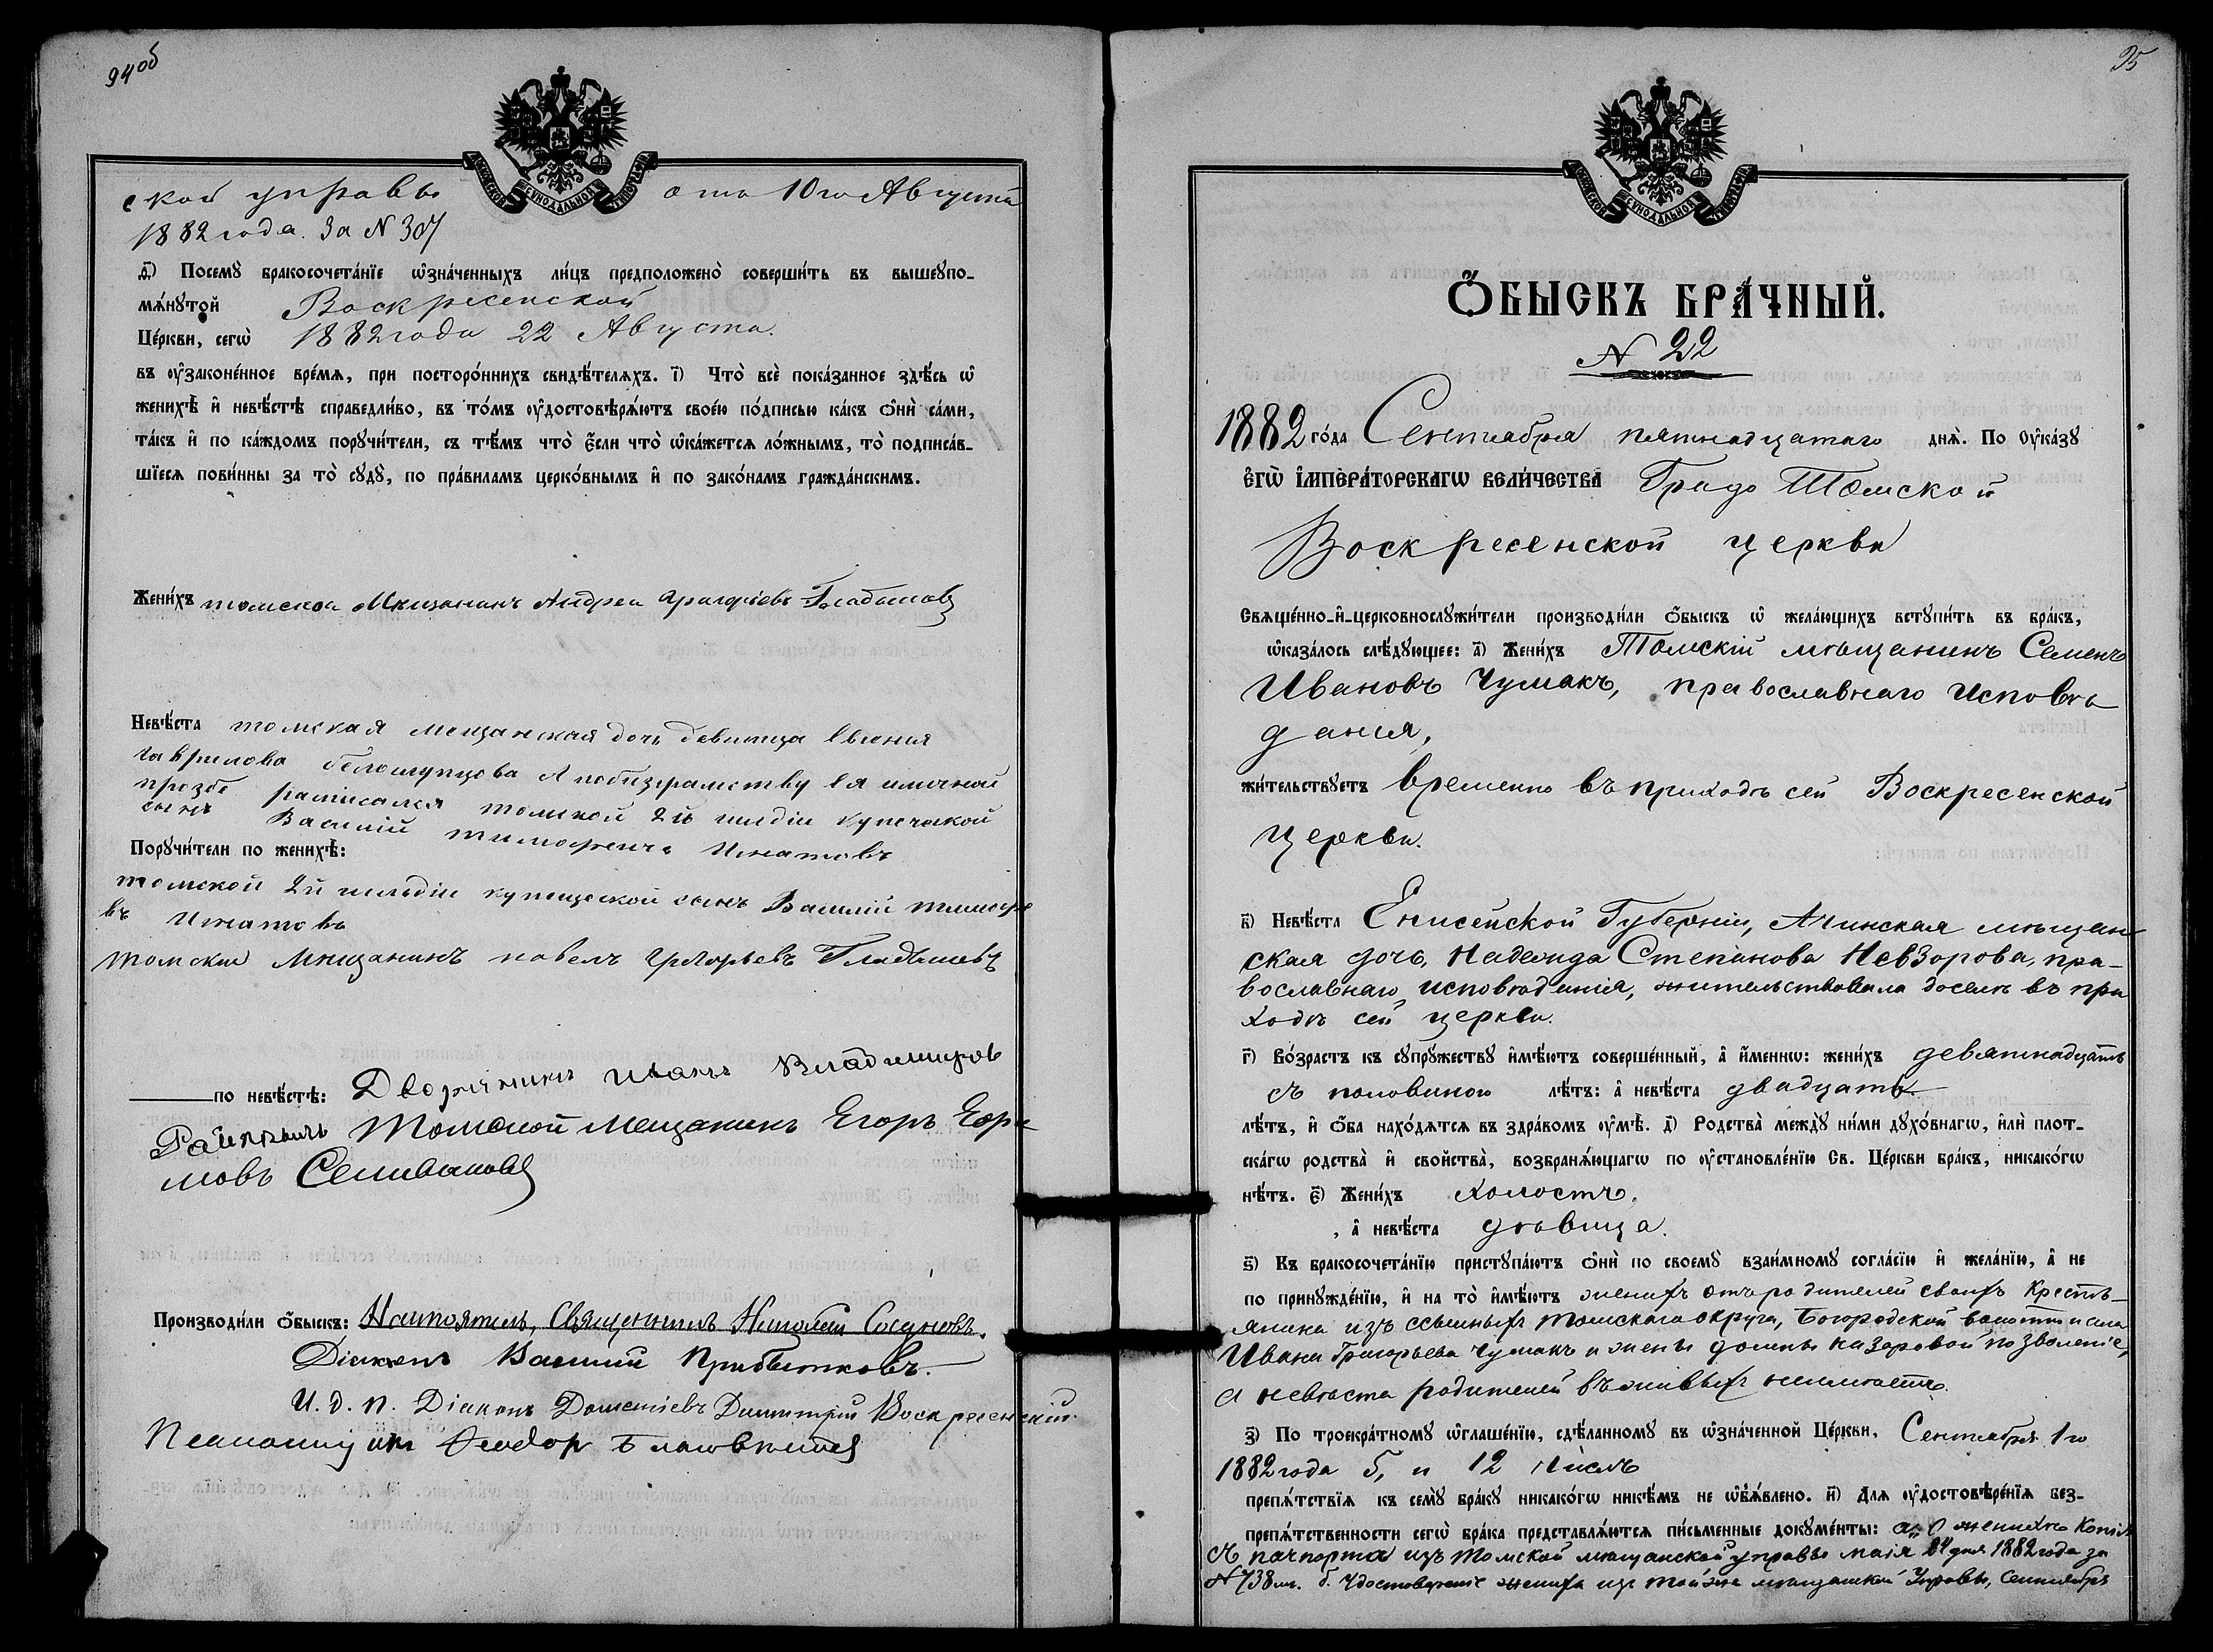 94 об
МОСКОВСКОЙ СѴНОДАЛЬНОЙ ТИПОГРАФІИ
ской управы отъ 10го Августа
1882 года. За N 307
д҃) Посемꙋ̀ бракосочета́нїе ѡ҆зна́ченныхъ ли́цъ предположено̀ соверши́ть въ вышеꙋпо-
мѧ́нꙋтой Воскресенской
Це́ркви, сегѡ̀ 1882 года 22 Августа.
въ ᲂу҆законе́нное вре́мѧ, при посторо́ннихъ свидѣ́телѧхъ. і҃) Что̀ всѐ пока́занное здѣ́сь ѡ҆
женихѣ̀ и҆ невѣ́стѣ справедли́во, въ то́мъ ᲂу҆достовѣрѧ́ютъ своє́ю по́дписью ка́къ ѻ҆нѝ са́ми,
та́къ и҆ по ка́ждомъ порꙋчи́тели, съ тѣ́мъ что̀ є҆́сли что̀ ѡ҆ка́жетсѧ ло́жнымъ, то̀ подписа́в-
шїесѧ пови́нны за то̀ сꙋдꙋ̀, по пра́виламъ церко́внымъ и҆ по зако́намъ гражда́нскимъ.
Жени́хъ томскои Мещанинъ Андреи Григорьевъ Гладышовъ
Невѣ́ста томская мещанская дочь девитца Евгения
гаврилова А понеграмотству Ея личной
прозбе расписался томской 2й гилдіи купеческой
сынъ Василій тимофеичъ Игнатовъ
Порꙋчи́тели по женихѣ̀:
томской 2й гильдіи купеческой сынъ Василій тимофе
въ Игнатовъ
томские Мещанинъ павелъ Григорьевъ Гладышевъ
по невѣ́стѣ: Дворянинъ Иванъ Владимиров
Томской мещанинъ Егоръ Ефри
мовъ Селивановъ
Производи́ли ѻ҆́быскъ: Настоятель, Священникъ Николай Сосуновъ.
Діаконъ Василий Прибытковъ.
И. д. п. Діаконъ Дометіевъ Димитрій Воскресенскій
Псаломщикъ Ѳеодор
95
МОСКОВСКОЙ СѴНОДАЛЬНОЙ ТИПОГРАФІИ
Ѻ҆́БЫСКЪ БРА́ЧНЫЙ.
N 22
1882 го́да Сентября пятнадцатаго днѧ̀. По ᲂу҆ка́зꙋ
є҆гѡ̀ і҆мпера́торскагѡ вели́чества Градо Томской
Воскресенской церкви
Свѧще́нно-и҆-церковнослꙋжи́тели производи́ли ѻ҆́быскъ ѡ҆ жела́ющихъ встꙋпи́ть въ бра́къ,
ѡ҆каза́лось слѣ́дꙋющее: а҃) Жени́хъ Томскій мѣщанинъ Семенъ
Ивановъ Чумакъ, православнаго исповѣ-
данія,
жи́тельствꙋетъ временно въ приходѣ сей Воскресенской
церкви.
в҃) Невѣ́ста Енисейской Губерніи, Ачинская мѣщан-
ская дочь, Надежда Степанова Невзорова, пра-
вославнаго исповѣданія, жительствовала доселѣ въ при
ходѣ сей церкви.
г҃) Во́зрастъ къ сꙋпрꙋ́жествꙋ и҆мѣ́ютъ соверше́нный, а҆ и҆́меннѡ: жени́хъ девятнадцать
съ половиною лѣ́тъ: а҆ невѣ́ста двадцать
лѣ́тъ, и҆ ѻ҆́ба нахо́дѧтсѧ въ здра́вомъ ᲂу҆мѣ̀. д҃) Родства̀ междꙋ̀ ни́ми дꙋхо́внагѡ, и҆лѝ плот-
ска́гѡ родства̀ и҆ сво́йства, возбранѧ́ющагѡ по ᲂу҆становле́нїю Св. Це́ркви бра́къ, никако́гѡ
нѣ́тъ. є҃) Жени́хъ холостъ,
, а҆ невѣ́ста дѣвица.
ѕ҃) Къ бракосочета́нїю пристꙋпа́ютъ ѻ҆нѝ по своемꙋ̀ взаи́мномꙋ согла́сїю и҆ жела́нїю, а҆ не
по принꙋжде́нїю, и҆ на то̀ и҆мѣ́ютъ женихъ отъ родителей своихъ Кресть-
янина изъ ссыльныхъ томскаго округа, Богородской волости и села
Ивана Григорьева Чумакъ и жены Казаровой позволеніе,
а невѣста родителей въ живыхъ неимѣетъ.
з҃) По троекра́тномꙋ ѡ҆глаше́нїю, сдѣ́ланномꙋ въ ѡ҆зна́ченной Це́ркви, Сентября 1го
1882 года 5, и 12 чиселъ
препѧ́тствїѧ къ семꙋ̀ бра́кꙋ никако́гѡ никѣ́мъ не ѡ҆б̾ѧ́влено. и҃) Длѧ ᲂу҆достовѣре́нїѧ без-
препѧ́тственности сегѡ̀ бра́ка представлѧ́ютсѧ пи́сьменные докꙋме́нты: а., О женихѣ Копія
съ пачпорта изъ томской мѣщанской управы маія 24 дня 1882 года за
N 738м. б. Удостовѣреніе жениха изъ той же мѣщанской Управы, Сентября